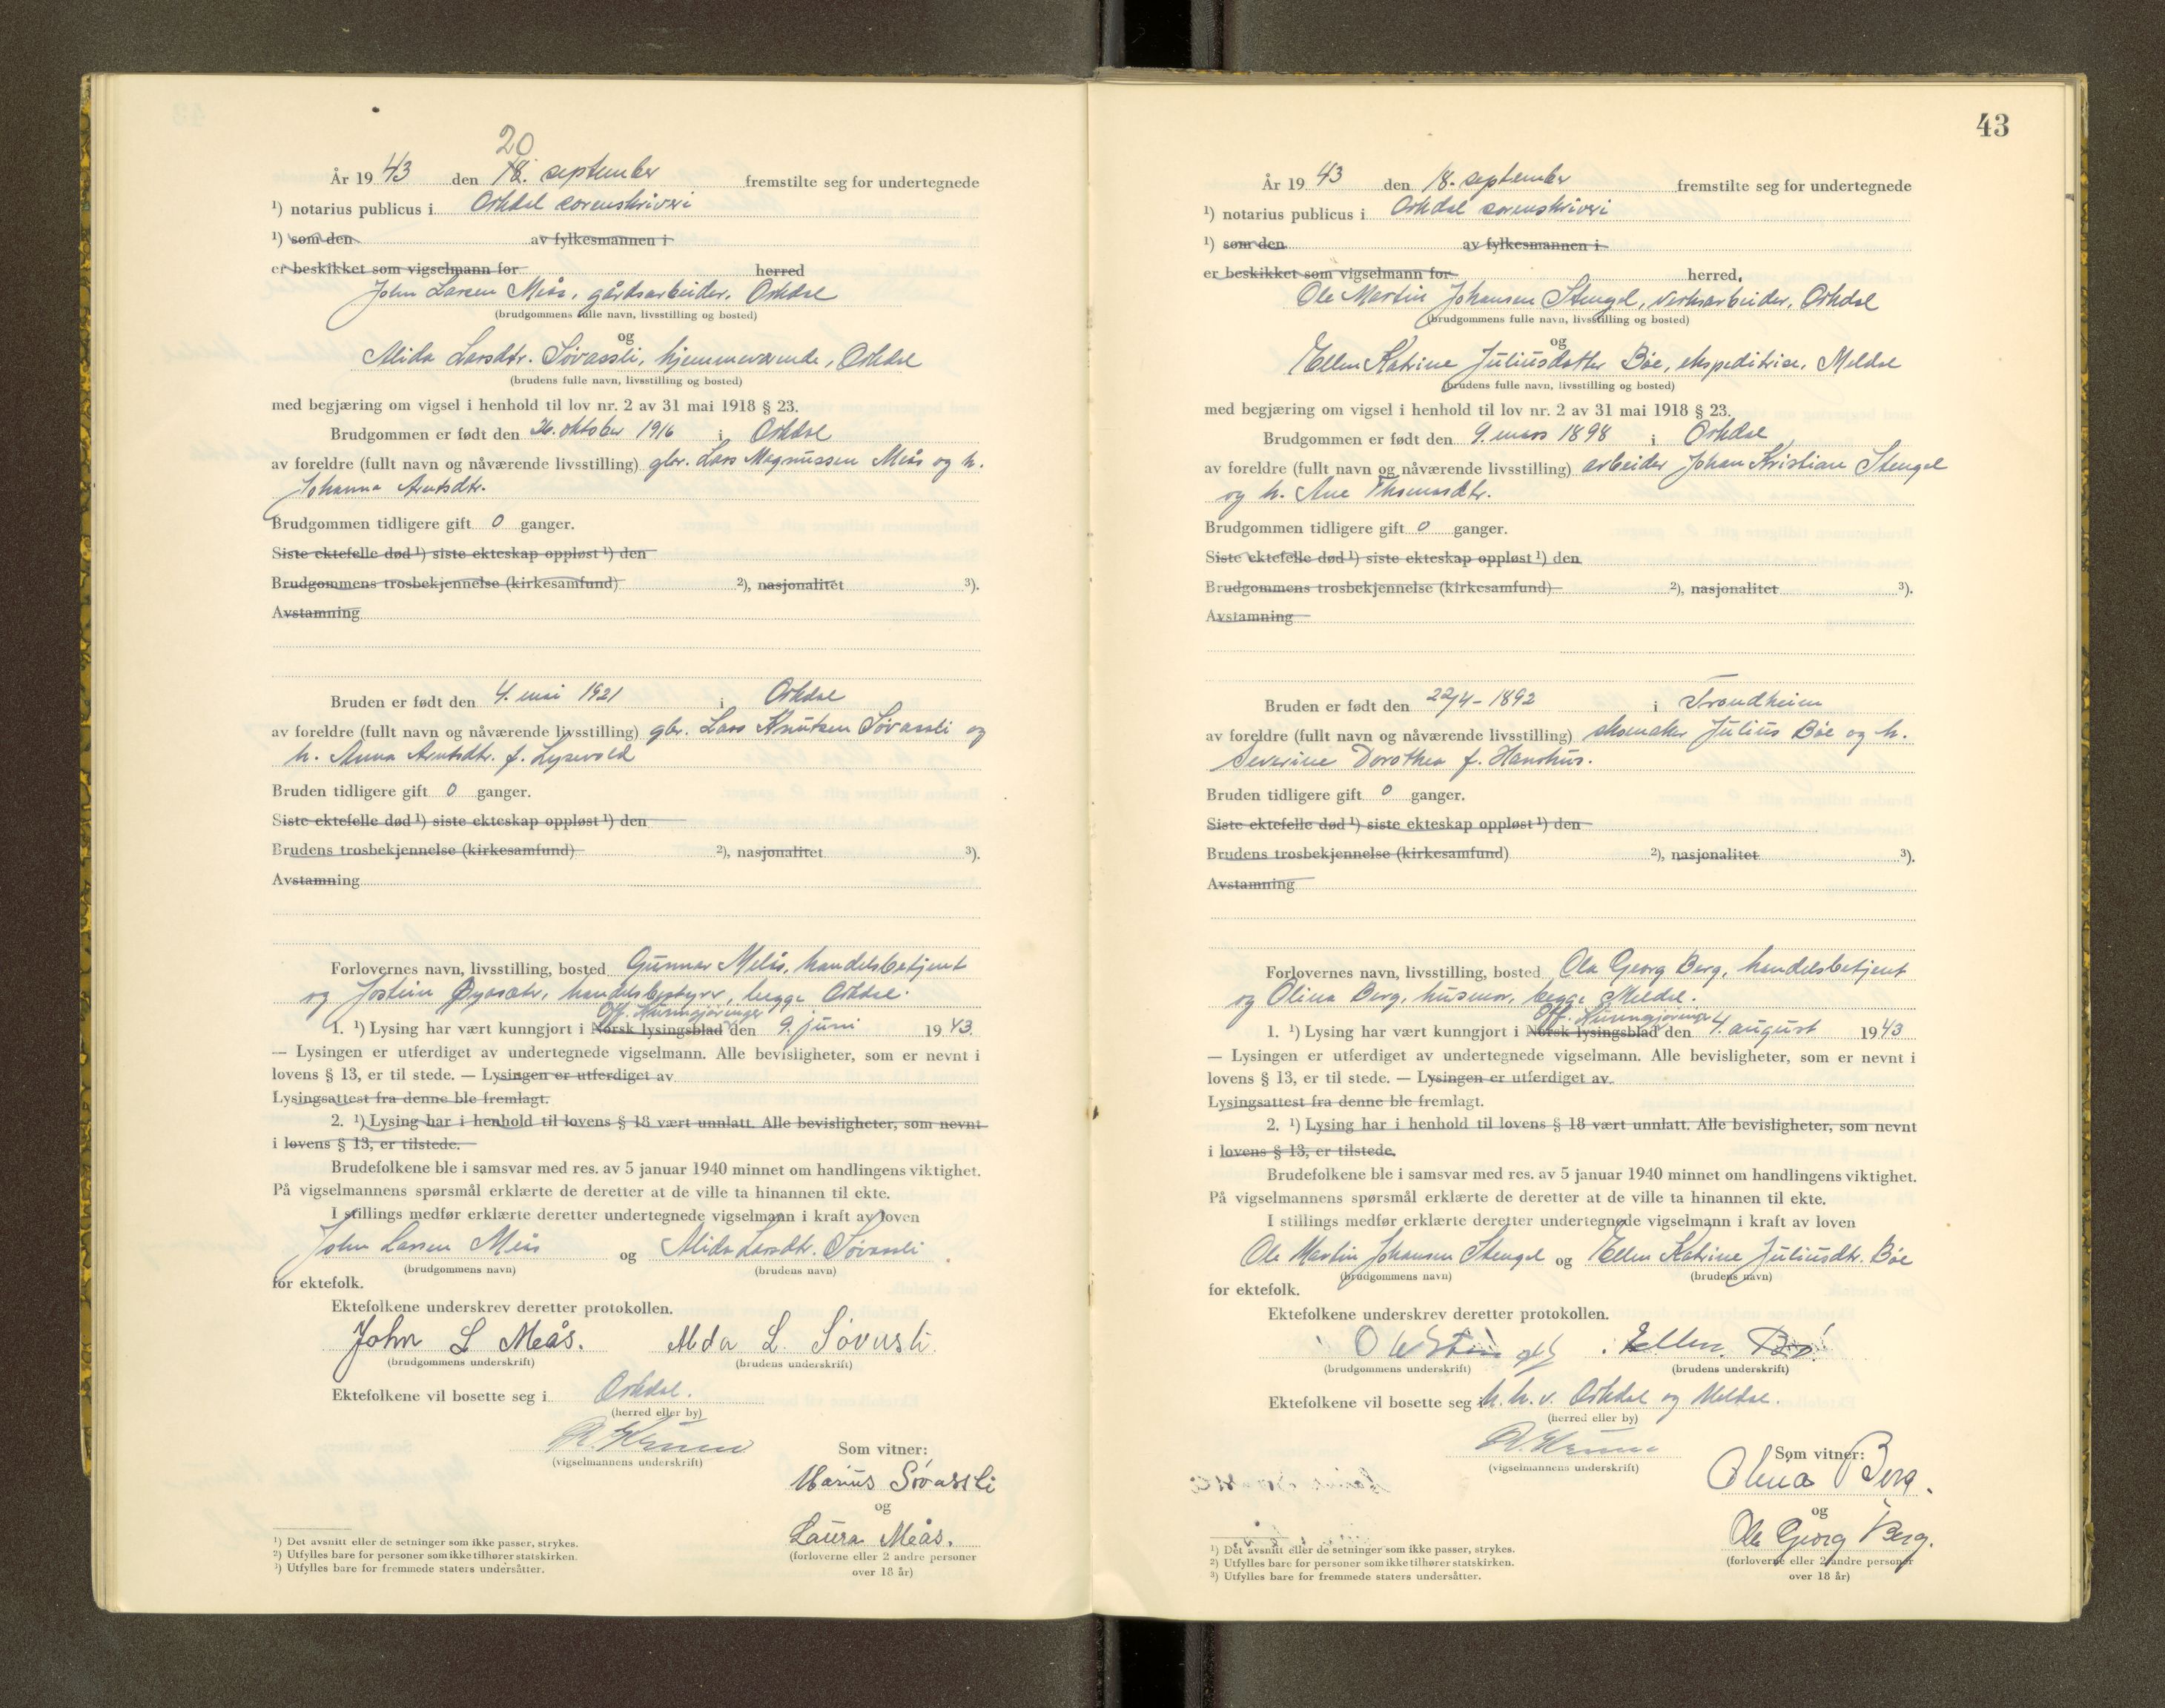 20
År 19 43 den 18. september fremstilte seg for undertegnede
¹) notarius publicus i Orkdal sorenskriveri
¹) som den av fylkesmannen i
er beskikket som vigselmann for herred
John Larsen Meås, gårdsarbeider, Orkdal
(brudgommens fulle navn, livsstilling og bosted)
og
Alida Larsdtr. Søvassli, hjemmeværende, Orkdal
(brudens fulle navn, livsstilling og bosted)
med begjæring om vigsel i henhold til lov nr. 2 av 31 mai 1918 § 23.
Brudgommen er født den 26. oktober 1916 i Orkdal
av foreldre (fullt navn og nåværende livsstilling) gbr. Lars Magnussen Meås og h.
Johanna Arntsdtr.
Brudgommen tidligere gift 0 ganger.
Siste ektefelle død ¹) siste ekteskap oppløst ¹) den
Brudgommens trosbekjennelse (kirkesamfund) ²), nasjonalitet ³).
Avstamning
Bruden er født den 4. mai 1921 i Orkdal
av foreldre (fullt navn og nåværende livsstilling) gbr. Lars Knutsen Søvassli og
h. Anna Arntsdtr. f. Lysevold
Bruden tidligere gift 0 ganger.
Siste ektefelle død ¹) siste ekteskap oppløst ¹) den
Brudens trosbekjennelse (kirkesamfund) ²), nasjonalitet ³).
Avstamning
Forlovernes navn, livsstilling, bosted Gunnar Melås, handelsbetjent
og Jostein Øyasæter, handelsbestyrer, begge Orkdal.
Off. Kunngjøringer
1. ¹) Lysing har vært kunngjort i Norsk lysingsblad den 9. juni 1943.
— Lysingen er utferdiget av undertegnede vigselmann. Alle bevisligheter, som er nevnt i
lovens § 13, er til stede. — Lysingen er utferdiget av
Lysingsattest fra denne ble fremlagt.
2. ¹) Lysing har i henhold til lovens § 18 vært unnlatt. Alle bevisligheter, som nevnt
i lovens § 13, er tilstede.
Brudefolkene ble i samsvar med res. av 5 januar 1940 minnet om handlingens viktighet.
På vigselmannens spørsmål erklærte de deretter at de ville ta hinannen til ekte.
I stillings medfør erklærte deretter undertegnede vigselmann i kraft av loven
John Larsen Meås og Alida Larsdtr. Søvassli
(brudgommens navn) (brudens navn)
for ektefolk.
Ektefolkene underskrev deretter protokollen.
John L Meås. Alida L. Søvasli.
(brudgommens underskrift) (brudens underskrift)
Ektefolkene vil bosette seg i Orkdal.
(herred eller by)
(vigselmannens underskrift)
Som vitner:
Marius Søvassli
og
Laura Meås.
(forloverne eller 2 andre personer
over 18 år)
¹) Det avsnitt eller de setninger som ikke passer, strykes.
²) Utfylles bare for personer som ikke tilhører statskirken.
³) Utfylles bare for fremmede staters undersåtter.
43
År 19 43 den 18. september fremstilte seg for undertegnede
¹) notarius publicus i Orkdal sorenskriveri
¹) som den av fylkesmannen i
er beskikket som vigselmann for herred,
Ole Martin Johansen Stengel, verksarbeider, Orkdal
(brudgommens fulle navn, livsstilling og bosted)
og
Ellen Katrine Juliusdatter Bøe, ekspeditrise, Meldal
(brudens fulle navn, livsstilling og bosted)
med begjæring om vigsel i henhold til lov nr. 2 av 31 mai 1918 § 23.
Brudgommen er født den 9. mars 1898 i Orkdal
av foreldre (fullt navn og nåværende livsstilling) arbeider Johan Kristian Stengel
og h. Ane Thomasdtr.
Brudgommen tidligere gift 0 ganger.
Siste ektefelle død ¹) siste ekteskap oppløst ¹) den
Brudgommens trosbekjennelse (kirkesamfund) ²), nasjonalitet ³).
Avstamning
Bruden er født den 22/4-1892 i Trondheim
av foreldre (fullt navn og nåværende livsstilling) skomaker Julius Bøe og h.
Severine Dorothea f. Hanshus.
Bruden tidligere gift 0 ganger.
Siste ektefelle død ¹) siste ekteskap oppløst ¹) den
Brudens trosbekjennelse (kirkesamfund) ²), nasjonalitet ³).
Avstamning
Forlovernes navn, livsstilling, bosted Ola Georg Berg, handelsbetjent
og Olina Berg, husmor, begge Meldal.
Off. Kunngjøringer
1. ¹) Lysing har vært kunngjort i Norsk lysingsblad den 4. august 1943
— Lysingen er utferdiget av undertegnede vigselmann. Alle bevisligheter, som er nevnt i
lovens § 13, er til stede. — Lysingen er utferdiget av
Lysingsattest fra denne ble fremlagt.
2. ¹) Lysing har i henhold til lovens § 18 vært unnlatt. Alle bevisligheter, som nevnt
i lovens § 13, er tilstede.
Brudefolkene ble i samsvar med res. av 5 januar 1940 minnet om handlingens viktighet.
På vigselmannens spørsmål erklærte de deretter at de ville ta hinannen til ekte.
I stillings medfør erklærte deretter undertegnede vigselmann i kraft av loven
Ole Martin Johansen Stengel og Ellen Katrine Juliusdtr. Bøe
(brudgommens navn) (brudens navn)
for ektefolk.
Ektefolkene underskrev deretter protokollen.
Ellen Bø.
(brudgommens underskrift) (brudens underskrift)
Ektefolkene vil bosette seg i h. h. v. Orkdal og Meldal.
(herred eller by)
(vigselmannens underskrift)
Som vitner:
Olina Berg.
og
Ola Georg Berg.
(forloverne eller 2 andre personer
over 18 år)
¹) Det avsnitt eller de setninger som ikke passer, strykes.
²) Utfylles bare for personer som ikke tilhører statskirken.
³) Utfylles bare for fremmede staters undersåtter.